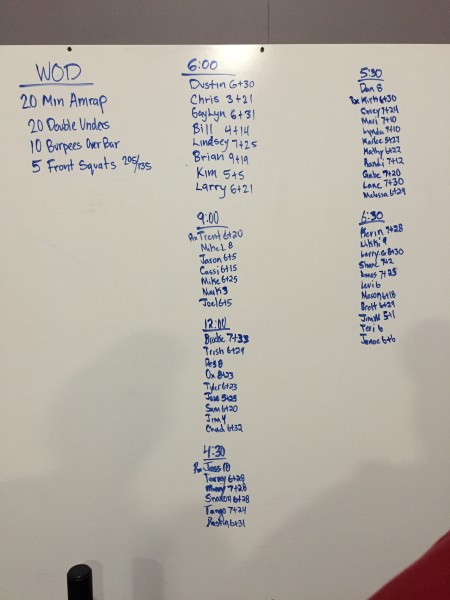 WOD
20 Min Amrap
20 Double Unders
10 Burpees Over Bar
5 Front Squats 205/135
6:00
Dustin 6+30
Chris 3+21
Gaylyn 6+31
Bill 4+14
Lindsey 7+25
Brian 9+19
Kim 5+5
Larry 6+21
9:00
Rx Trent 6+20
Mike L 8
Jason 6+5
Cassi 6+15
Mike 6+25
Mark 3
Joel 6+5
12:00
Brooke 7+33
Trish 6+29
8
Ox 8+23
Tyler 6+23
Jose
Sam 6+20
Jim 4
Chad 6+32
4:30
Rx Jass
6+28
7+28
Sharon 6+28
Tango 7+24
Dustin 6+31
5:30
Dan 8
Rx Kirth 6+30
Corey 7+24
Mari 7+10
Lynda 7+10
Kailee 5+27
Kathy 6+22
Randi 7+12
Gabe 9+20
Lane 7+30
Melissa 6+29
6:30
7+28
Likki 9
Larry G 8+30
Shane 7+2
7+25
Levi 6
Mason 6+18
Brett 6+29
5+1
Teri 6
6+6